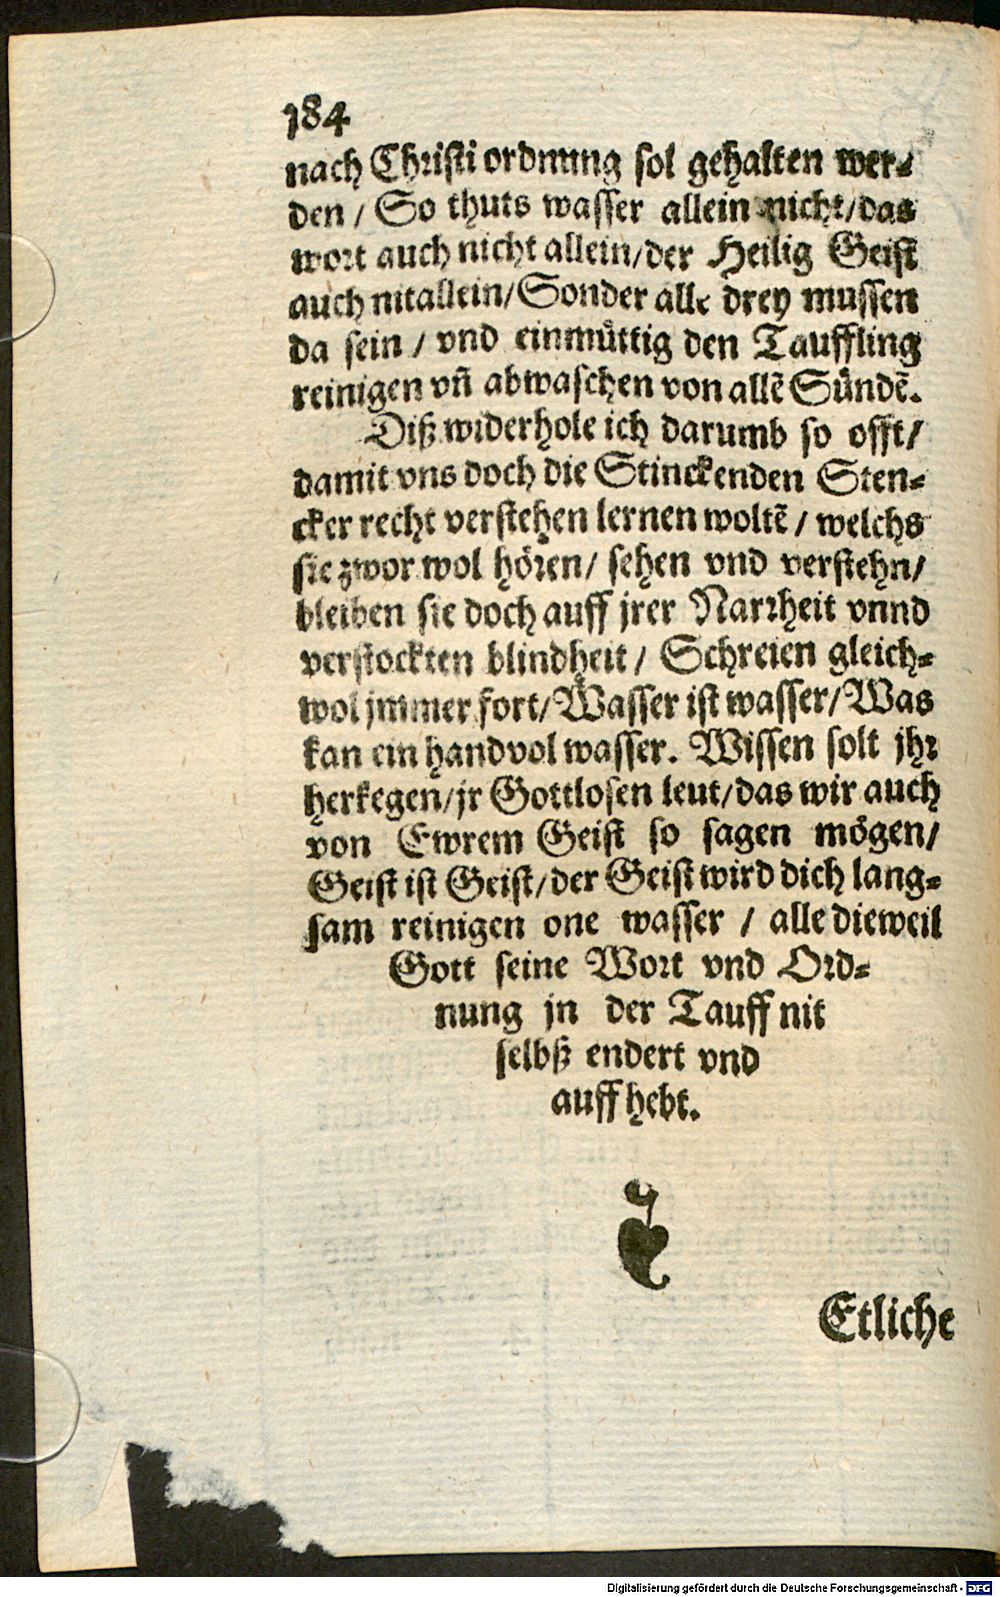 184
nach Christi ordnung sol gehalten wer⸗
den / So thuts wasser allein nicht/das
wort auch nicht allein/der Heilig Geist
auch nitallein/Sonder alle drey mussen
da sein / vnd einmuͤttig den Tauffling
reinigen vn̄ abwaschen von allē Sündē.
Diß widerhole ich darumb so offt/
damit vns doch die Stinckenden Sten⸗
cker recht verstehen lernen woltē / welchs
sie zwor wol hören/ sehen vnd verstehn/
bleiben sie doch auff jrer Narrheit vnnd
verstockten blindheit / Schreien gleich⸗
wol jmmer fort/ Wasser ist wasser/Was
kan ein handvol wasser. Wissen solt jhr
herkegen/jr Gottlosen leut/das wir auch
von Ewrem Geist so sagen mögen/
Geist ist Geist/der Geist wird dich lang⸗
sam reinigen one wasser / alle dieweil
Gott seine Wort vnd Ord⸗
nung jn der Tauff nit
selbß endert vnd
auff hebt.
Etliche
Digitalisierung gefördert durch die Deutsche Forschungsgemeinschaft - DFG